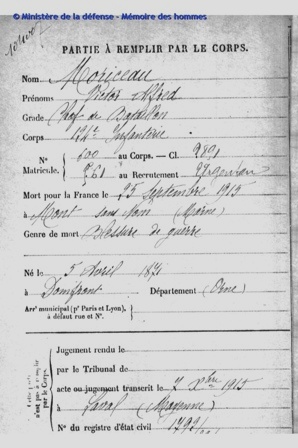 © Ministère de la défense - Mémoire des hommes
PARTIE À REMPLIR PAR LE CORPS.
Nom Moriceau
Prénoms Victor Alfred
Grade Chef de Bataillon
Corps 124e Infanterie
N° 600 au Corps. — Cl. 1891
Matricule. 861 au Recrutement
Mort pour la France le 25 Septembre 1915
à Mont sans Nom (Marne)
Genre de mort Blessure de guerre
Né le 5 Avril 1871
à Domfront Département (Orne)
Arr^t municipal (p^r Paris et Lyon),
à défaut rue et N°.
Jugement rendu le
par le Tribunal de
acte ou jugement transcrit le 7 Xbre 1915
à Laval (Mayenne)
N° du registre d'état civil
n'est pas à remplir
par le Corps.